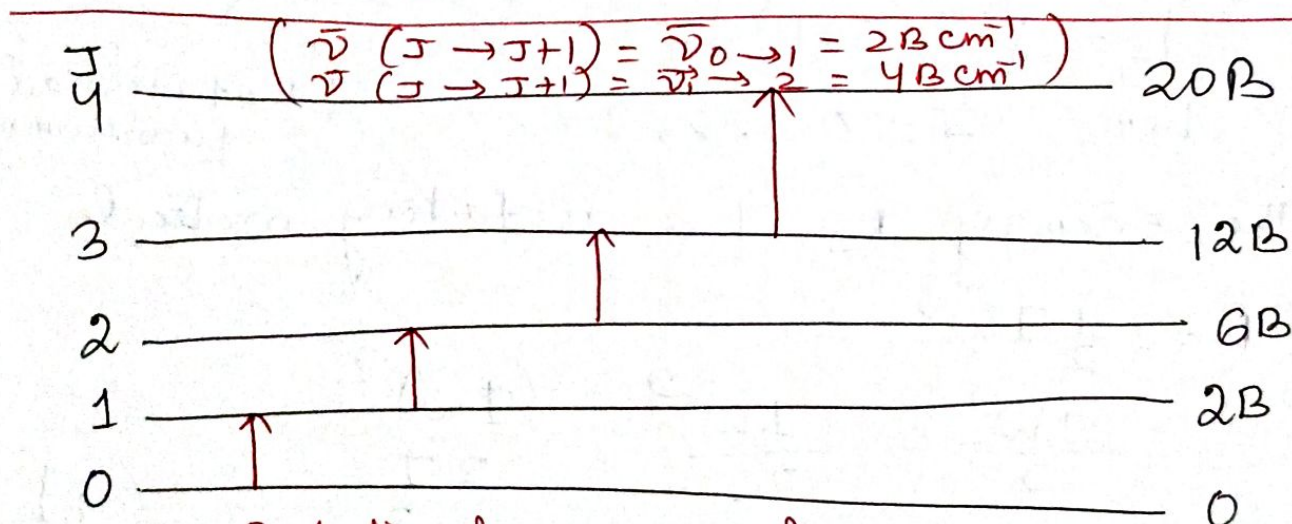 J
( ν̄ (J → J+1) = ν̄ 0 → 1 = 2B cm⁻¹ )
( ν̄ (J → J+1) = ν̄ 1 → 2 = 4B cm⁻¹ )
4 20B
3 12B
2 6B
1 2B
0 0